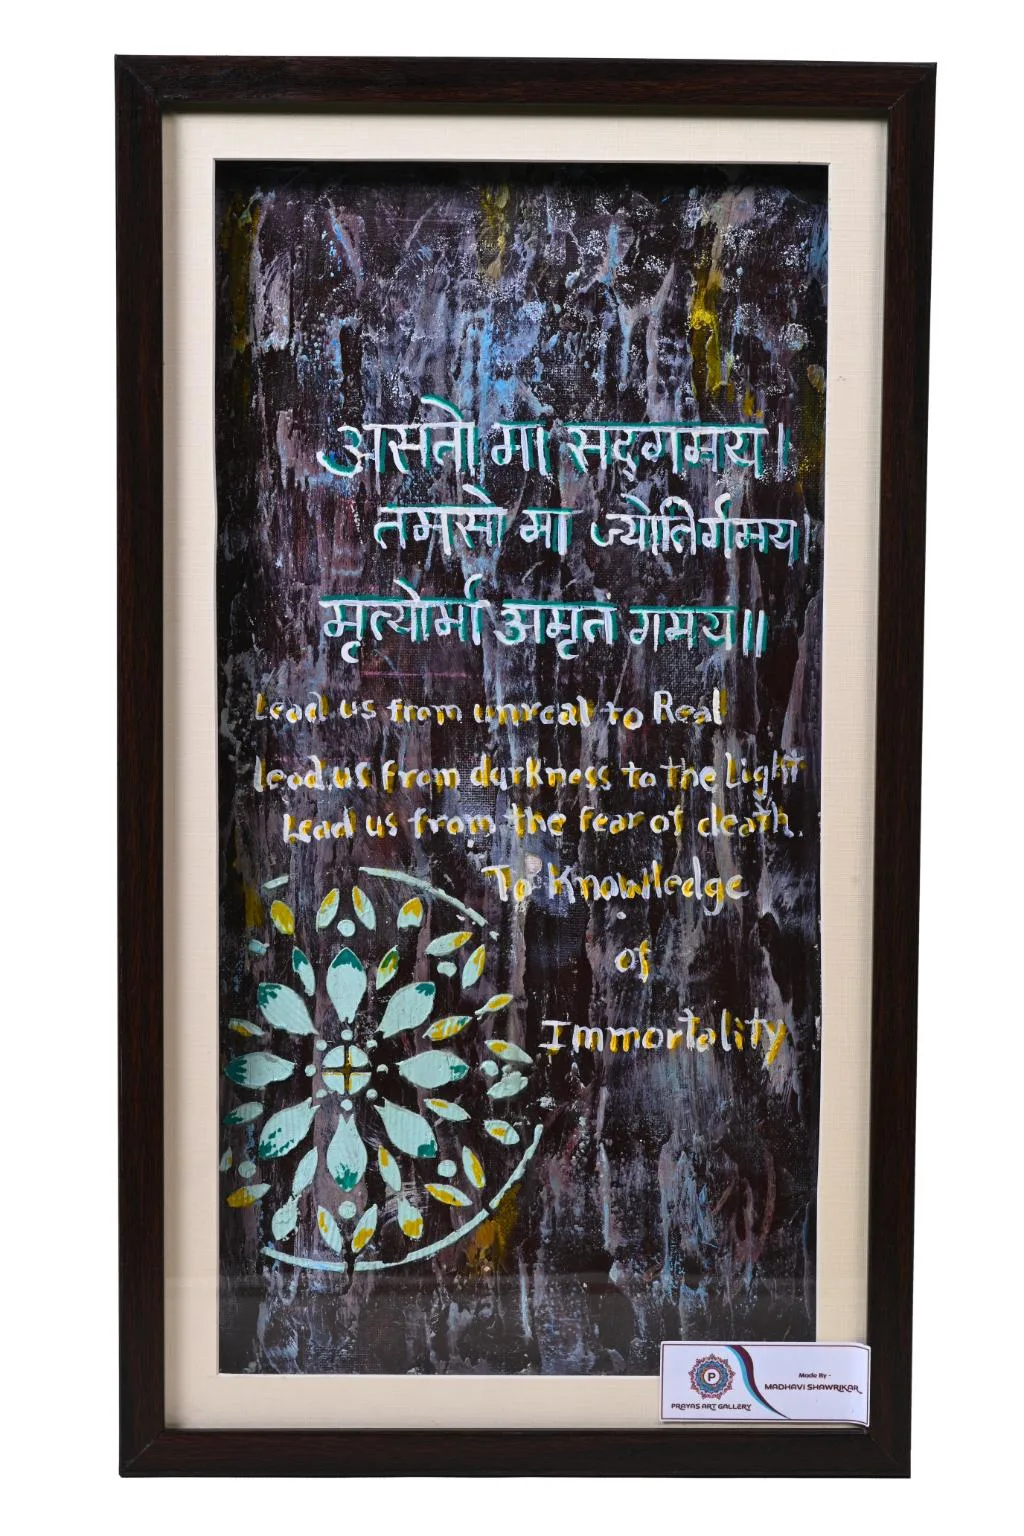 असतो मा सद्गमय।
तमसो मा ज्योतिर्गमय।
मृत्योर्मा अमृतं गमय॥
Lead us from unreal to Real
Lead us from darkness to the Light
Lead us from the fear of death.
To Knowledge
of
Immortality
P
PRAYAS ART GALLERY
Made By -
MADHAVI SHAWRIKAR